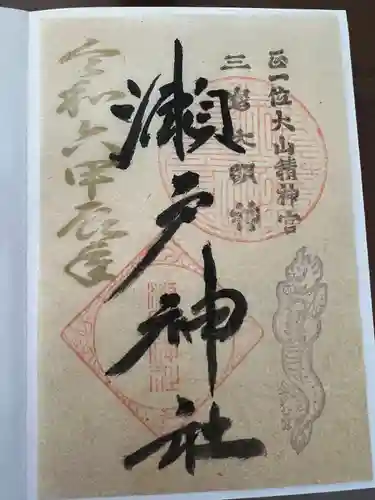 正一位大山積神宮
三嶋大明神
瀬戸神社
令和六甲辰歳